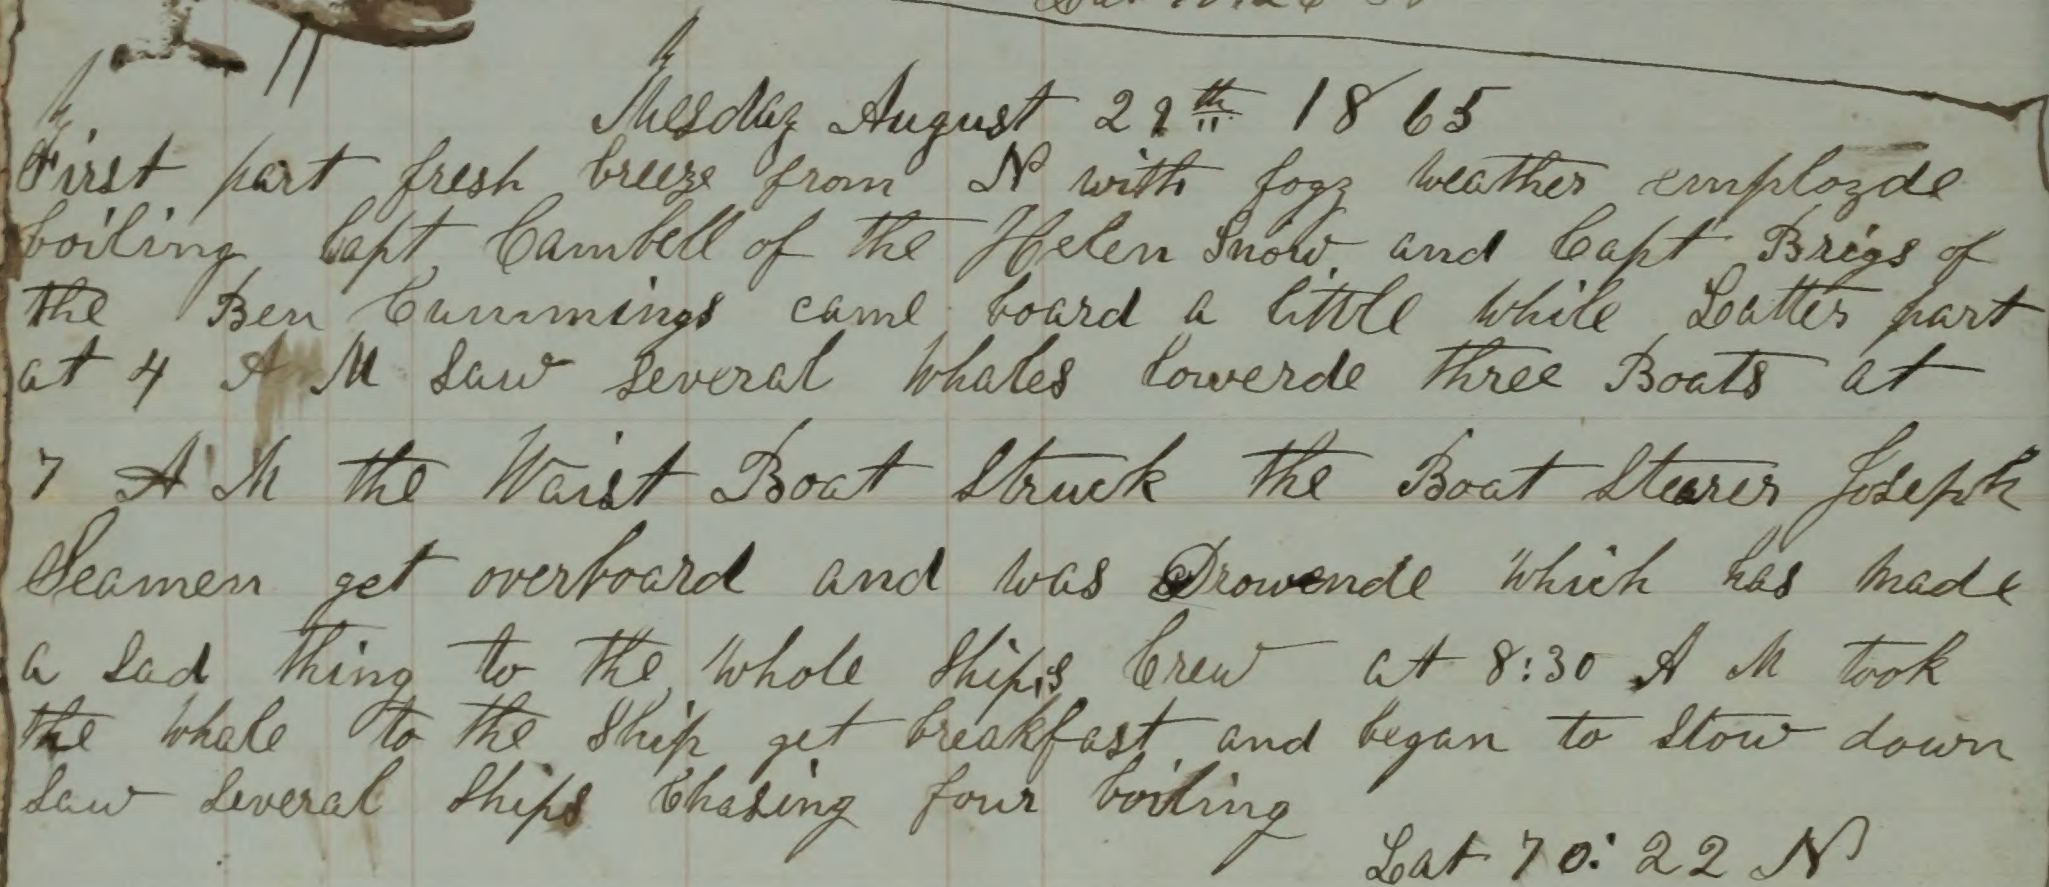 Tuesday August 29th 1865
First part fresh breeze from N with fogy weather employde
boiling Capt Cambell of the Helen Snow and Capt Brigs of
the Ben Cummings came board a little while Latter part
at 4 A M saw several Whales lowerde three Boats at
7 A M the Waist Boat Struck the Boat Stearer Joseph
Seamen get overboard and was Drowende which has made
a sad thing to the whole ship,s Crew at 8:30 A M took
the whale to the ship get breakfast and began to stow down
saw several ships Chasing four boiling
Lat 70: 22 N